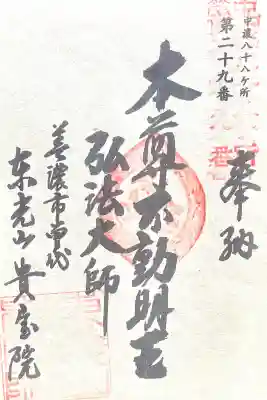 中濃八十八ケ所
第二十九番
奉納
本尊不動明王
弘法大師
美濃市曽代
东光山 貴宝院